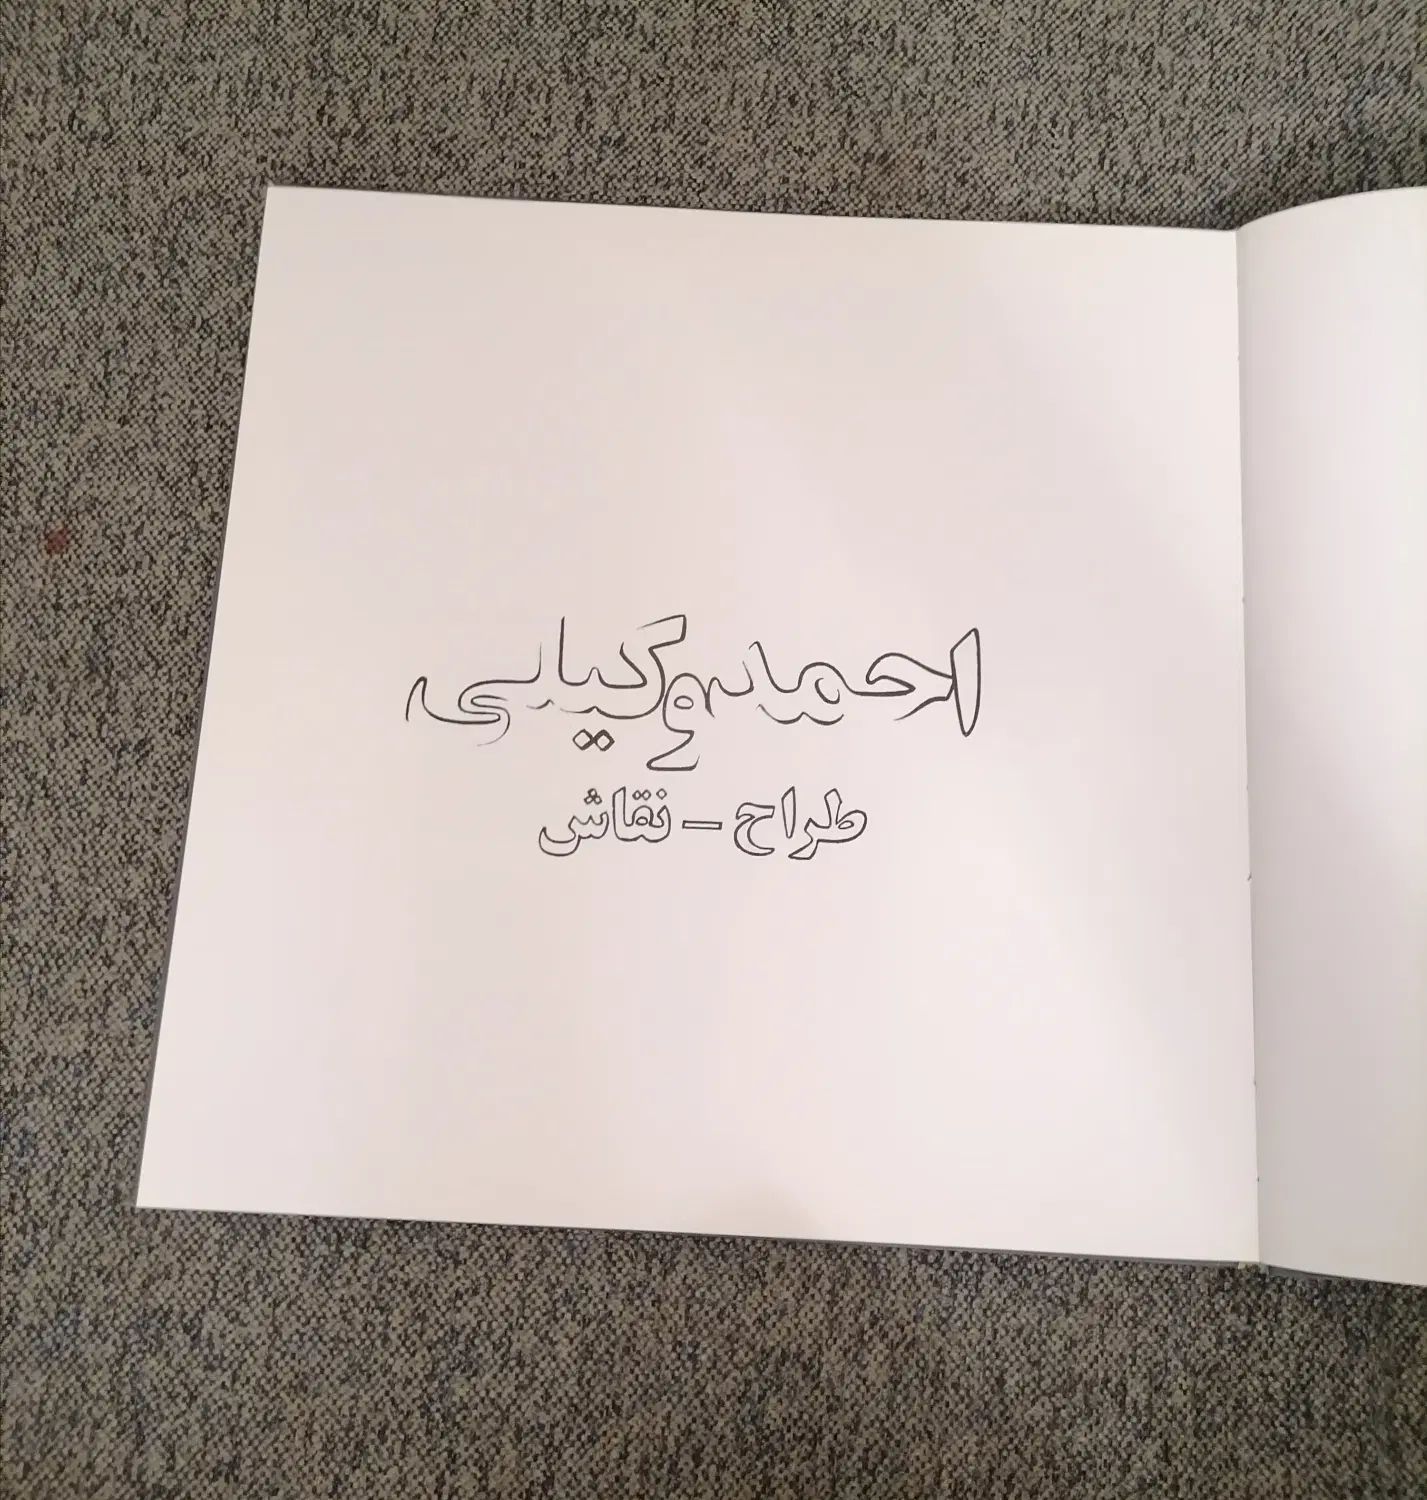 احمد وکیلی
طراح - نقاش